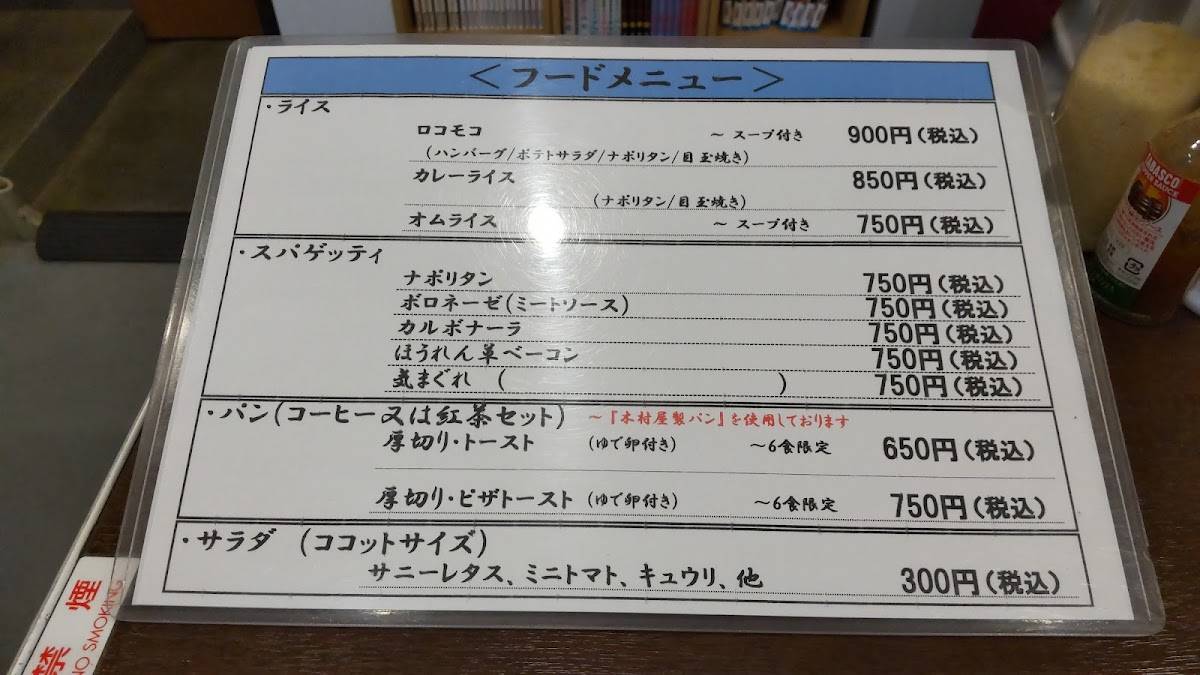 ＜フードメニュー＞
・ライス
ロコモコ ～ スープ付き 900円(税込)
(ハンバーグ/ポテトサラダ/ナポリタン/目玉焼き)
カレーライス 850円(税込)
(ナポリタン/目玉焼き)
オムライス ～ スープ付き 750円(税込)
・スパゲッティ
ナポリタン 750円(税込)
ボロネーゼ(ミートソース) 750円(税込)
カルボナーラ 750円(税込)
ほうれん草ベーコン 750円(税込)
気まぐれ ( ) 750円(税込)
・パン(コーヒー又は紅茶セット) ～『木村屋製パン』を使用しております
厚切り・トースト (ゆで卵付き) ～6食限定 650円(税込)
厚切り・ピザトースト (ゆで卵付き) ～6食限定 750円(税込)
・サラダ (ココットサイズ)
サニーレタス、ミニトマト、キュウリ、他 300円(税込)
禁煙
NO SMOKING
TABASCO
PEPPER SAUCE